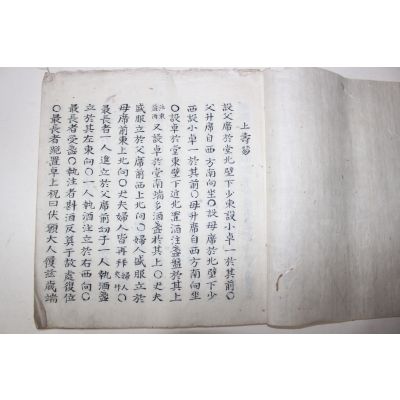 上壽笏
設父席於堂北壁下少東設小卓一於其前○
父升席自西方南向坐○設母席於北壁下少
西設小卓一於其前○母升席自西方南向坐
○設卓於堂東壁下近北置酒注盞盤於其上
又設卓於堂南端多酒盞於其上○丈夫
盛服立於父席前西上北向○婦人盛服立於
母席前東上北向○丈夫婦人皆再拜
最長者一人進立於父席前幼子一人執酒盞
立於其左東向○一人執酒注立於右西向○
最長者受盞○執注者斟酒反奠于故處復位
○最長者跪置卓上祝曰伏願大人履玆歲端